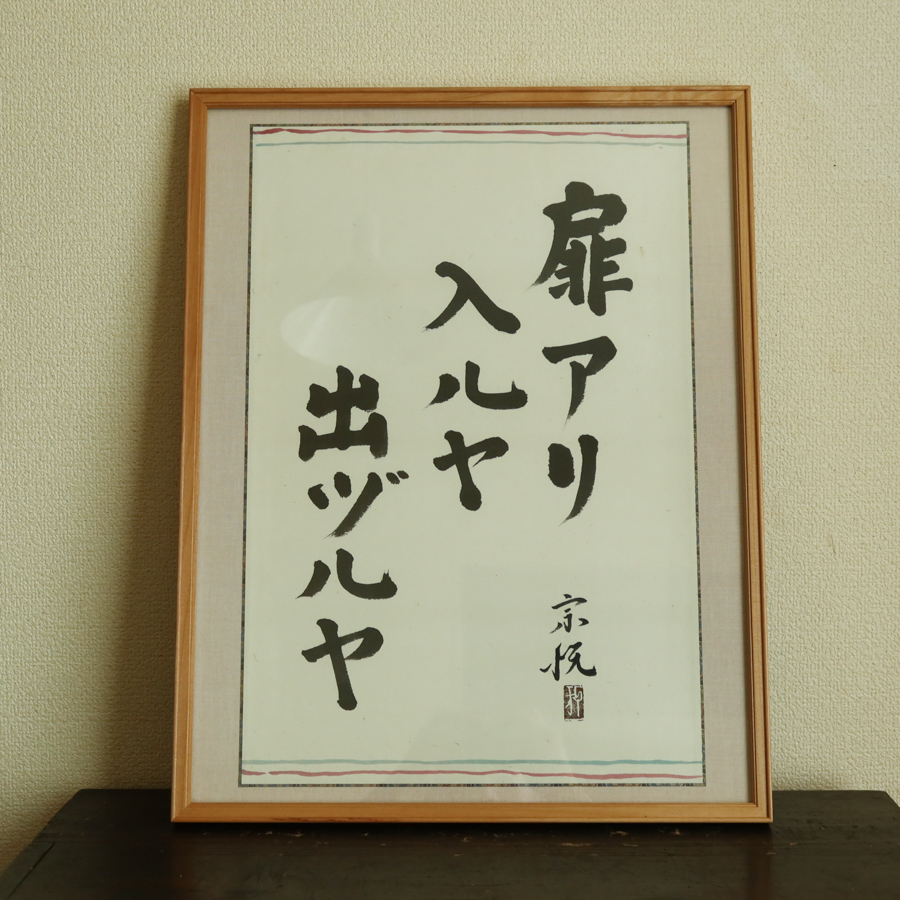 扉アリ
入ルヤ
出ヅルヤ
宗悦